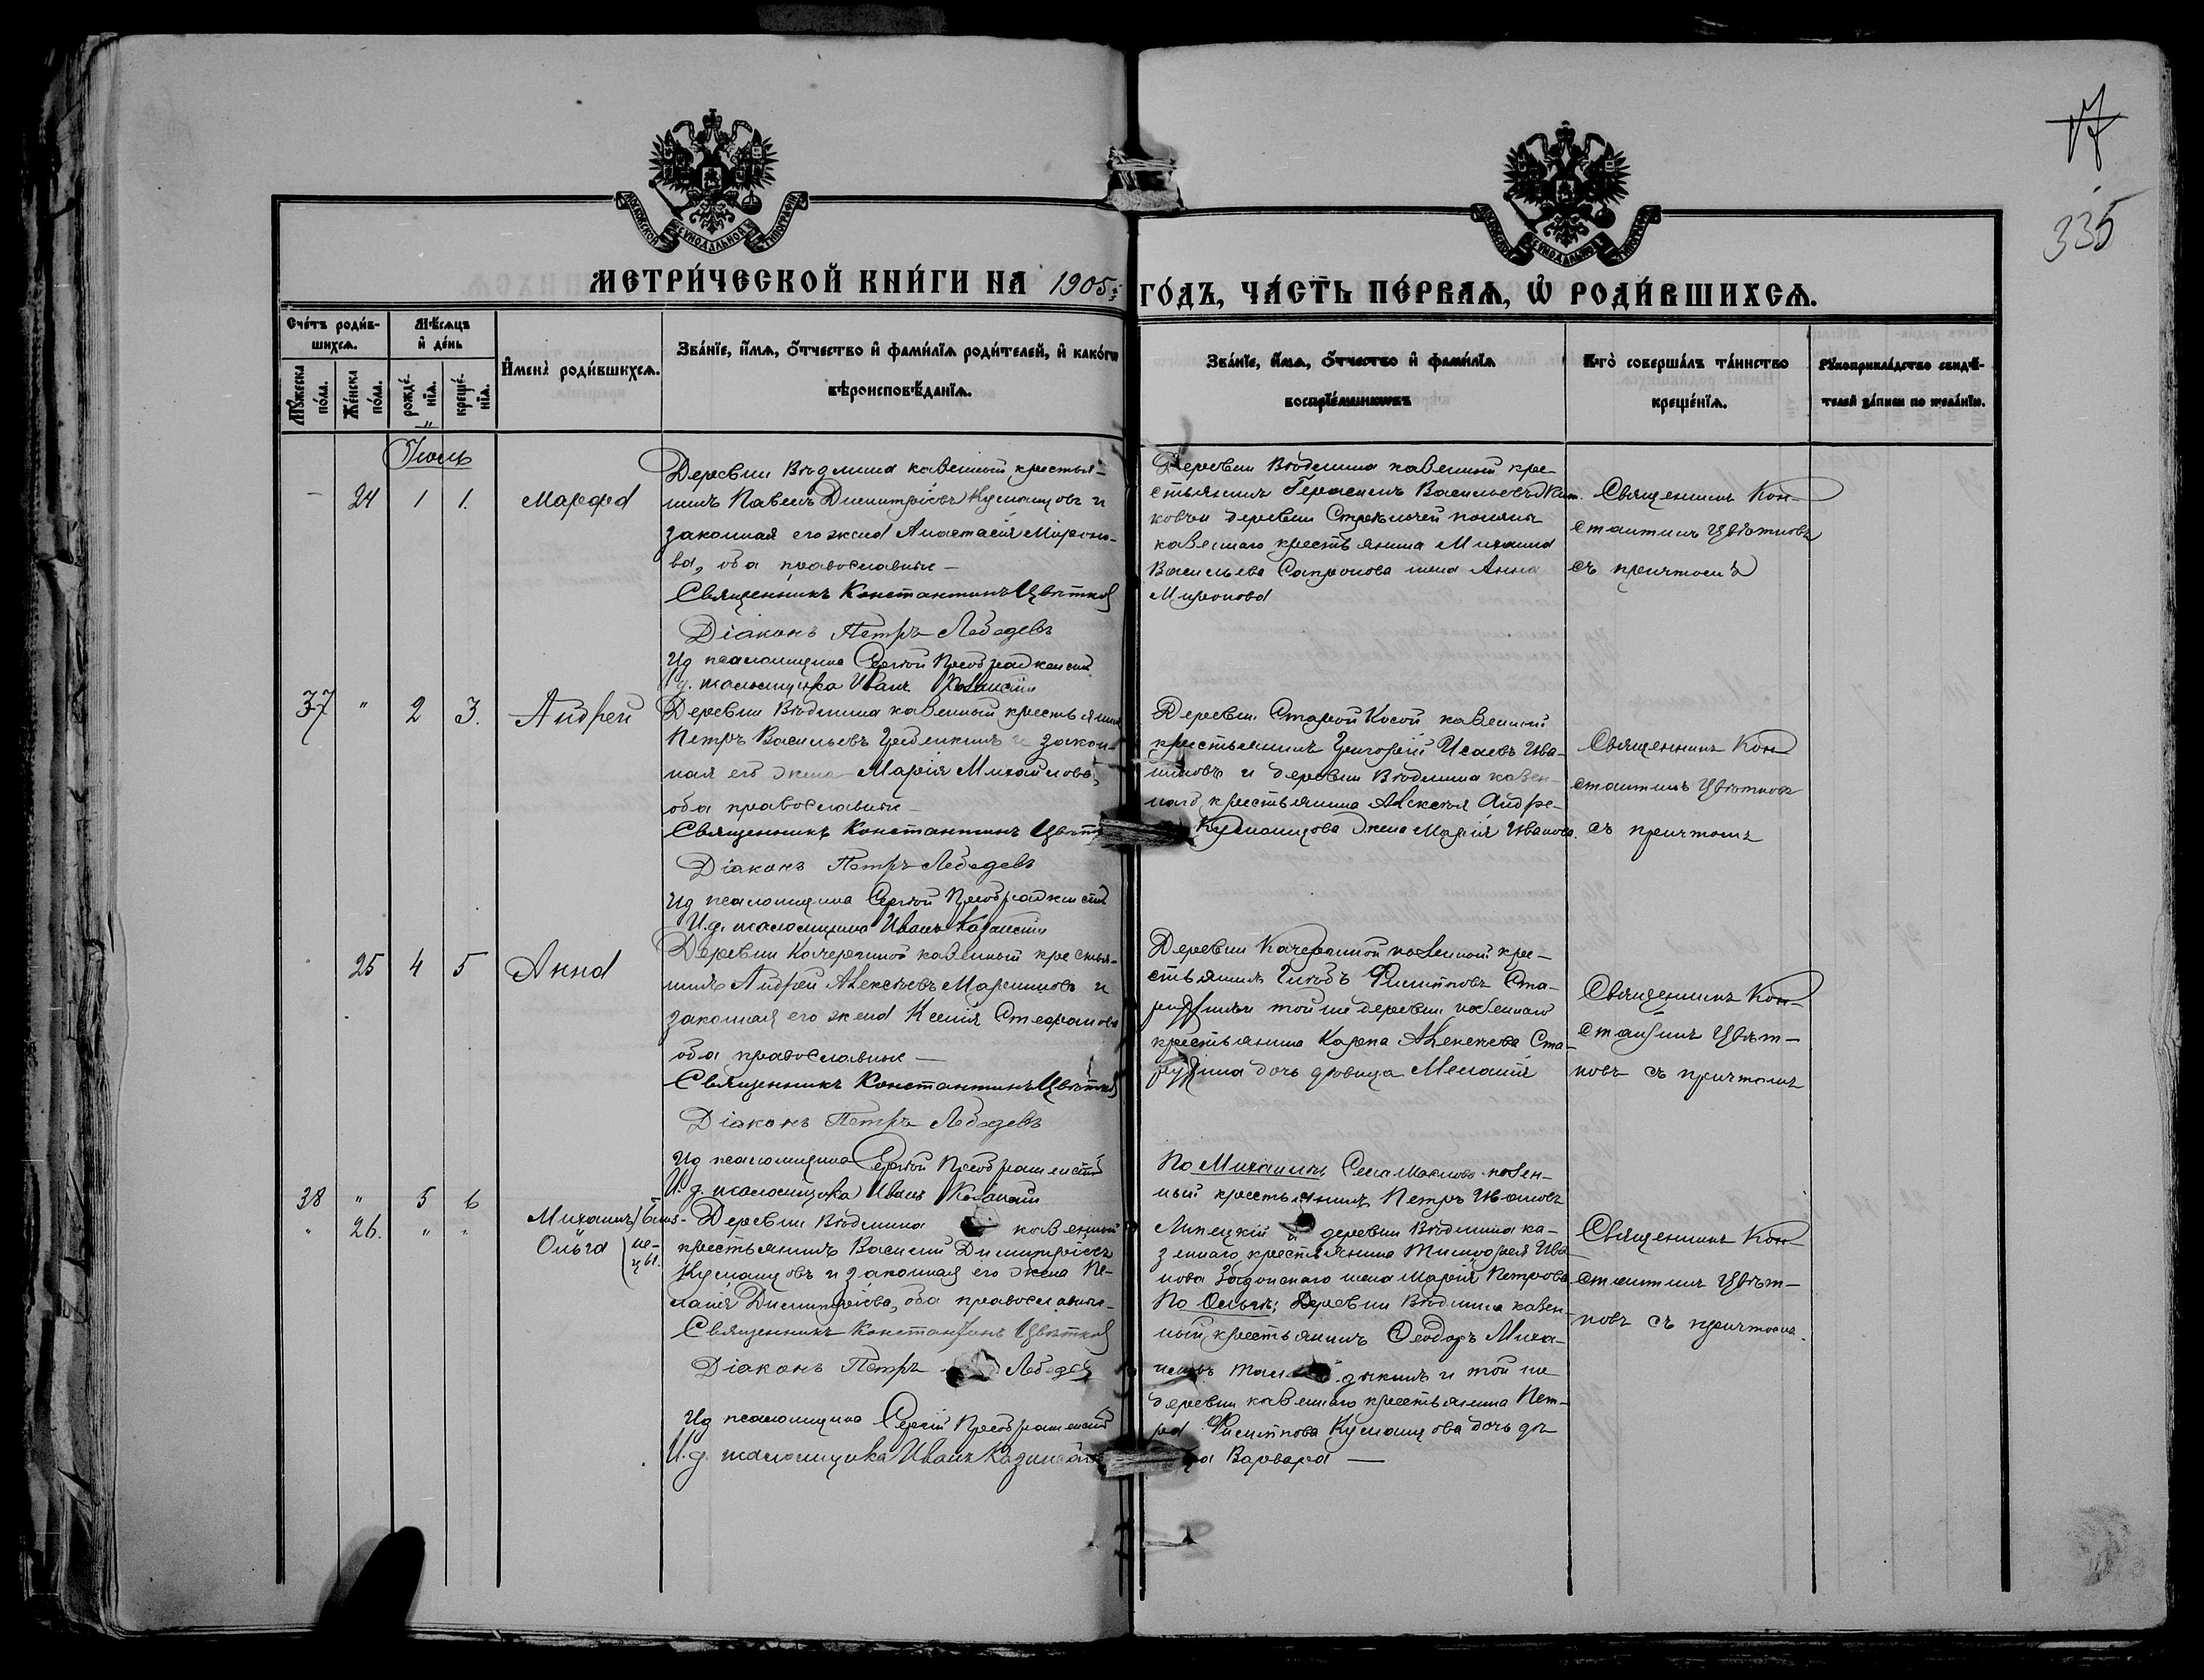 17
335
МОСКОВСКОЙ СѴНОДАЛЬНОЙ ТИПОГРАФІИ
МОСКОВСКОЙ СѴНОДАЛЬНОЙ ТИПОГРАФІИ
МЕТРИ́ЧЕСКОЙ КНИ́ГИ НА 1905 ГО́ДЪ, ЧА́СТЬ ПЕ́РВАѦ, Ѡ РОДИ́ВШИХСѦ.
Сче́тъ роди́в-
шихсѧ.
Мꙋ́жеска по́ла.
Же́нска по́ла.
Мѣ́сѧцъ и҆ де́нь
рожде́-
нїѧ.
креще́-
нїѧ.
И҆мена̀ роди́вшихсѧ.
Зва́нїе, и҆́мѧ, ѻ҆́тчество и҆ фами́лїѧ роди́телей, и҆ како́гѡ
вѣроисповѣ́данїѧ.
Зва́нїе, и҆́мѧ, ѻ҆́тчество и҆ фами́лїѧ
воспрїе́мникѡвъ
Кто̀ соверша́лъ та́инство
креще́нїѧ.
Рꙋкоприкла́дство свидѣ́-
телей за́писи по жела́нїю.
Іюль
24 1 1. Марфа
Деревни Вѣдмина казенный крестья-
нинъ Павелъ Димитріевъ Кузнецовъ и
законная его жена Анастасія Миро-
ва, оба православные —
Священникъ Константинъ Цвѣтков
Діаконъ Петръ Лебедевъ
Ид псаломщика Сергій Преображенскій
И.д. псаломщика Иванъ Казанскій
Деревни Вѣдмина казенный кре-
стьянинъ Герасимъ Васильевъ
деревни
казеннаго крестьянина Михаила
Васильева Сапронова жена Анна
Миронова
Священникъ Кон-
стантинъ Цвѣтковъ
съ причтомъ
37 " 2 3. Андрей
Деревни Вѣдмина казенный крестьянинъ
Петръ Васильевъ и закон-
ная его жена Марія Михайлова,
оба православные —
Священникъ Константинъ Цвѣт
Діаконъ Петръ Лебедевъ
Ид псаломщика Сергій Преображенскій
И.д. псаломщика Иванъ Казанскій
Деревни Старой Косой казенный
крестьянинъ Григорій Исаевъ Ива-
новъ и деревни Вѣдмина казен-
наго крестьянина Алексѣя Андре-
Кузнецова жена Марія Иванова.
Священникъ Кон-
стантинъ Цвѣтковъ
съ причтомъ
25 4 5 Анна
Деревни казенный крестья-
нинъ Андрей Алексѣевъ и
законная его жена Ксенія Стефанова
оба православные —
Священникъ Константинъ Цвѣтков
Діаконъ Петръ Лебедевъ
Ид псаломщика Сергій Преображенскій
И.д. псаломщика Иванъ Казанскій
Деревни казенный кре-
стьянинъ Глѣбъ Филипповъ Ста-
той же деревни казеннаго
крестьянина Карпа Алексѣева Ста-
дочь дѣвица Меланія
Священникъ Кон-
стантинъ Цвѣт-
ковъ съ причтомъ
38 " 5 6
" 26. " "
Михаилъ
Ольга
близ-
не-
цы.
Деревни Вѣдмина казенный
крестьянинъ Василій Димитріевъ
Кузнецовъ и законная его жена Пе-
лагія Димитріева, оба православные —
Священникъ Константинъ Цвѣтков
Діаконъ Петръ Лебедев
Ид псаломщика Сергій Преображенскій
И.д. псаломщика Иванъ Казанскій
По Михаилѣ: Села казен-
ный крестьянинъ Петръ Ивановъ
Липецкій и деревни Вѣдмина ка-
зеннаго крестьянина Тимофея Ива-
нова Задонскаго жена Марія Петрова
По Ольгѣ: Деревни Вѣдмина казен-
ный крестьянинъ Ѳеодоръ Миха-
и той же
деревни казеннаго крестьянина Пет-
ра Филиппова Кузнецова дочь дѣ-
ца Варвара —
Священникъ Кон-
стантинъ Цвѣт-
ковъ съ причтомъ.